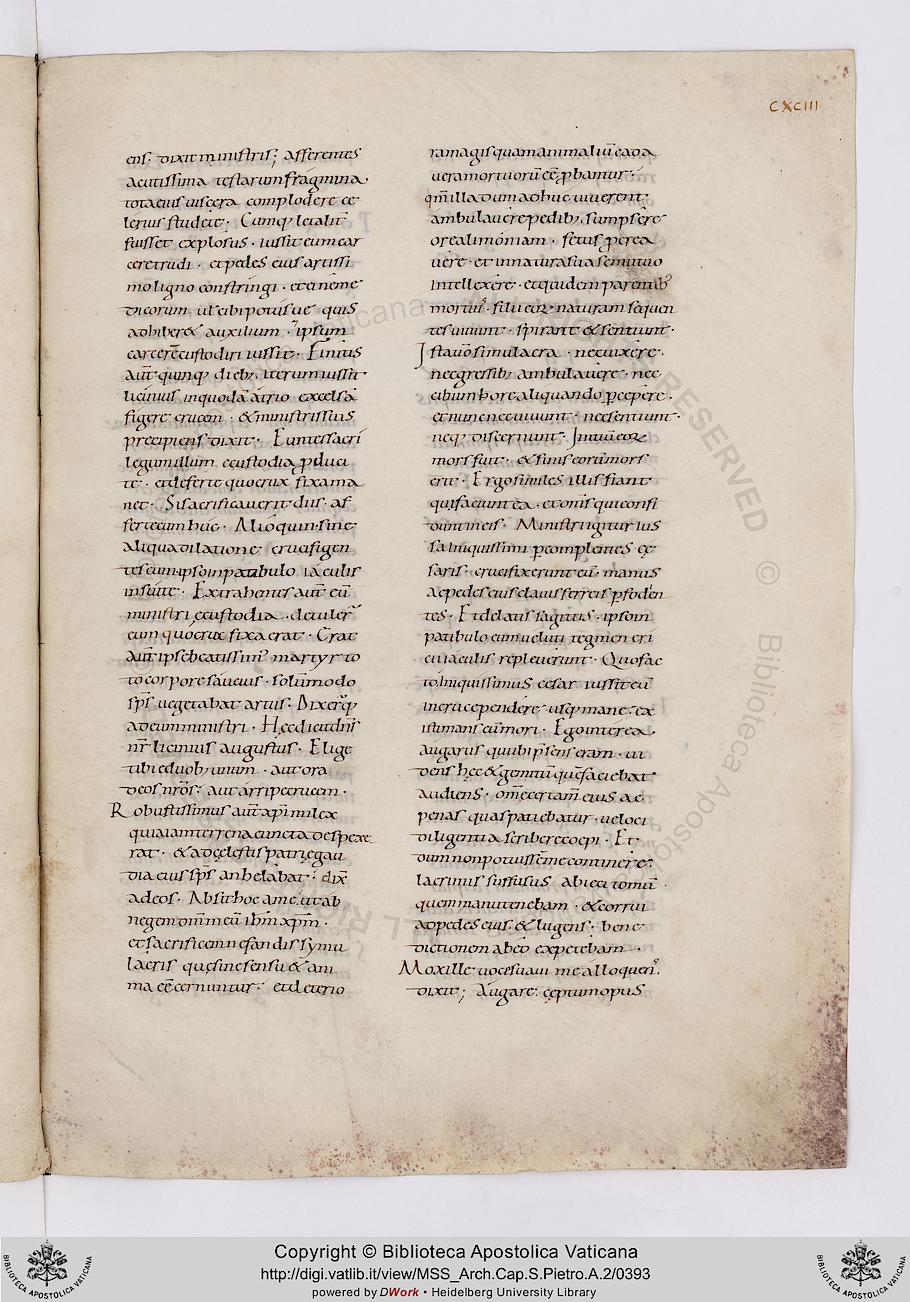 CXCIII
ens· dixit ministris; afferentes
acutissima testarum fragmina·
tota eius uiscera complodere ce
lerius studete· Cumq; letalit̄
fuisset explosus· iussit eum car
cere trudi· et pedes eius artissi
mo ligno constringi· et ei neme
dicorum ul̄ cibi potusue quis
adhiberet auxilium· ipsum
carcerē custodiri iussit· Finitis
aut̄ quinq; dieb; iterum iussit
licinius in quodā atrio excelsā
figere crucem· & ministris suis
precipiens dixit· Euntes sacri
legum illum ecustodia pduci
te· et deferte quo crux fixa ma
net· Si sacrificauerit diis· af
ferte eum huc· Alioquin· sine
aliqua dilatione crucifigen
tes eum· ipso in patibulo iaculis
insuite· Extrahentes aut̄ eū
ministri ecustodia· detuler̄
eum quo crux fixa erat· Erat
aut̄ ipse beatissim' martyr to
to corpore saucius· solūmodo
sp̄s uegetabat artus· Dixer̄q;
ad eum ministri· Hęc dicit dn̄s
nr̄ licinius augustus· Elige
tibi e duob; unum· aut ora
deos nr̄os; aut arripe crucem·
Robustissimus aut̄ xp̄i milex
quia iam terrena cuncta despexe
rat· & ad cęlestis patrię gau
dia eius sp̄s anhelabat· dix̄
ad eos· Absit hoc a me· ut ab
negem om̄m eū ihm̄ xp̄m·
et sacrificem nefandis symu
lacris quę sine sensu & ani
ma eē cernuntur· et deterio
ra magis quam animaliū ea da
uera mortuorū eē pbantur·
qm̄ illa dum adhuc uiuerent·
ambulauere pedib; sumpsere
ore alimoniam· fetus perea
uere· et in natura sua se mutuo
intellexere· et quidem parentib;
mortuis· filii eorum naturam sequen
tes uiuunt· spirant & sentiunt·
Ista uō simulacra· nec uixere·
nec gressib; ambulauere· nec
cibum hore aliquando pcepere·
et nunc nec uiuunt· nec sentiunt·
neq; discernunt· Initiū eorum
mors fuit· & finis eorūmors
erit· Ergo similes illis fiant
qui faciunt ea· et om̄s qui confi
dunt in eis· Ministri igitur ius
sa iniquissimi pcomplentes cę
saris· crucifixerunt eū· manus
ac pedes eius clauis ferreis pfoden
tes· Et delatis sagittis· ipso in
patibulo eum ueluti tegmen cri
cii iaculis repleuerunt· Quo fac
to iniquissimus cesar iussit eū
in cruce pendere usq; mane· ex
istimans eū mori· Ego interea·
augarus qui ubi p̄sens eram· ui
dens hęc & gemitū quę faciebat
audiens· om̄e certam̄ eius ac
penas quas patiebatur· ueloci
diligentia scribere coepi· Et
dum non potuissē me continere·
lacrimis suffusus abieci tomū·
quem manu tenebam· & corrui
ad pedes eius· & lugens· bene
dictionem ab eo expetebam·
Mox ille uoce suaui me alloquens·
dixit; Augare· cęptum opus
Copyright © Biblioteca Apostolica Vaticana
http://digi.vatlib.it/view/MSS_Arch.Cap.S.Pietro.A.2/0393
powered by DWork • Heidelberg University Library